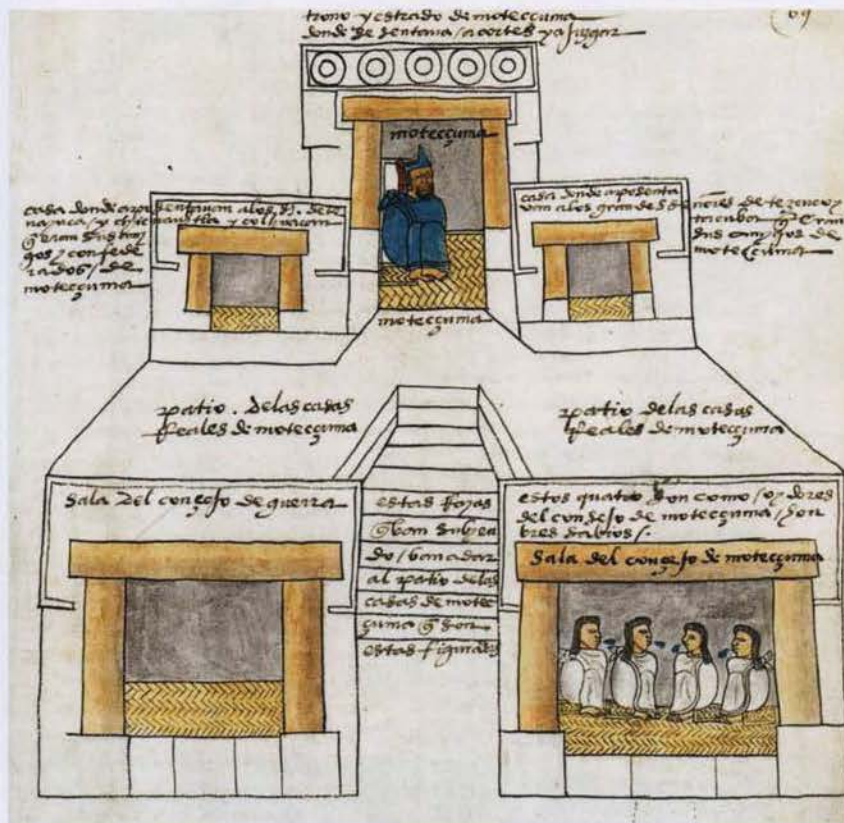 69
trono y estrado de moteccuma
donde se sentava / a cortes y a juzgar
moteccuma
casa donde aposentavan a los s.s. de te
nayuca / y chicnauhtla y colhuacan
q̃ eran sus ami
gos / y confede
rados / de
moteccuma
casa donde aposenta
van a los grandes señores de tezcuco y
tacuba q̃ eran
sus amigos de
moteccuma
moteccuma
patio . de las casas
rreales de moteccuma
patio de las casas
rreales de moteccuma
sala del consejo de guerra
estas rayas
q̃ ban subyen
do / ban a dar
al patio de las
casas de mote
cuma q̃ son
estas figuradas
estos quatro son como / oydores
del consejo de moteccuma / hon
bres sabios /.
sala del consejo de moteccuma